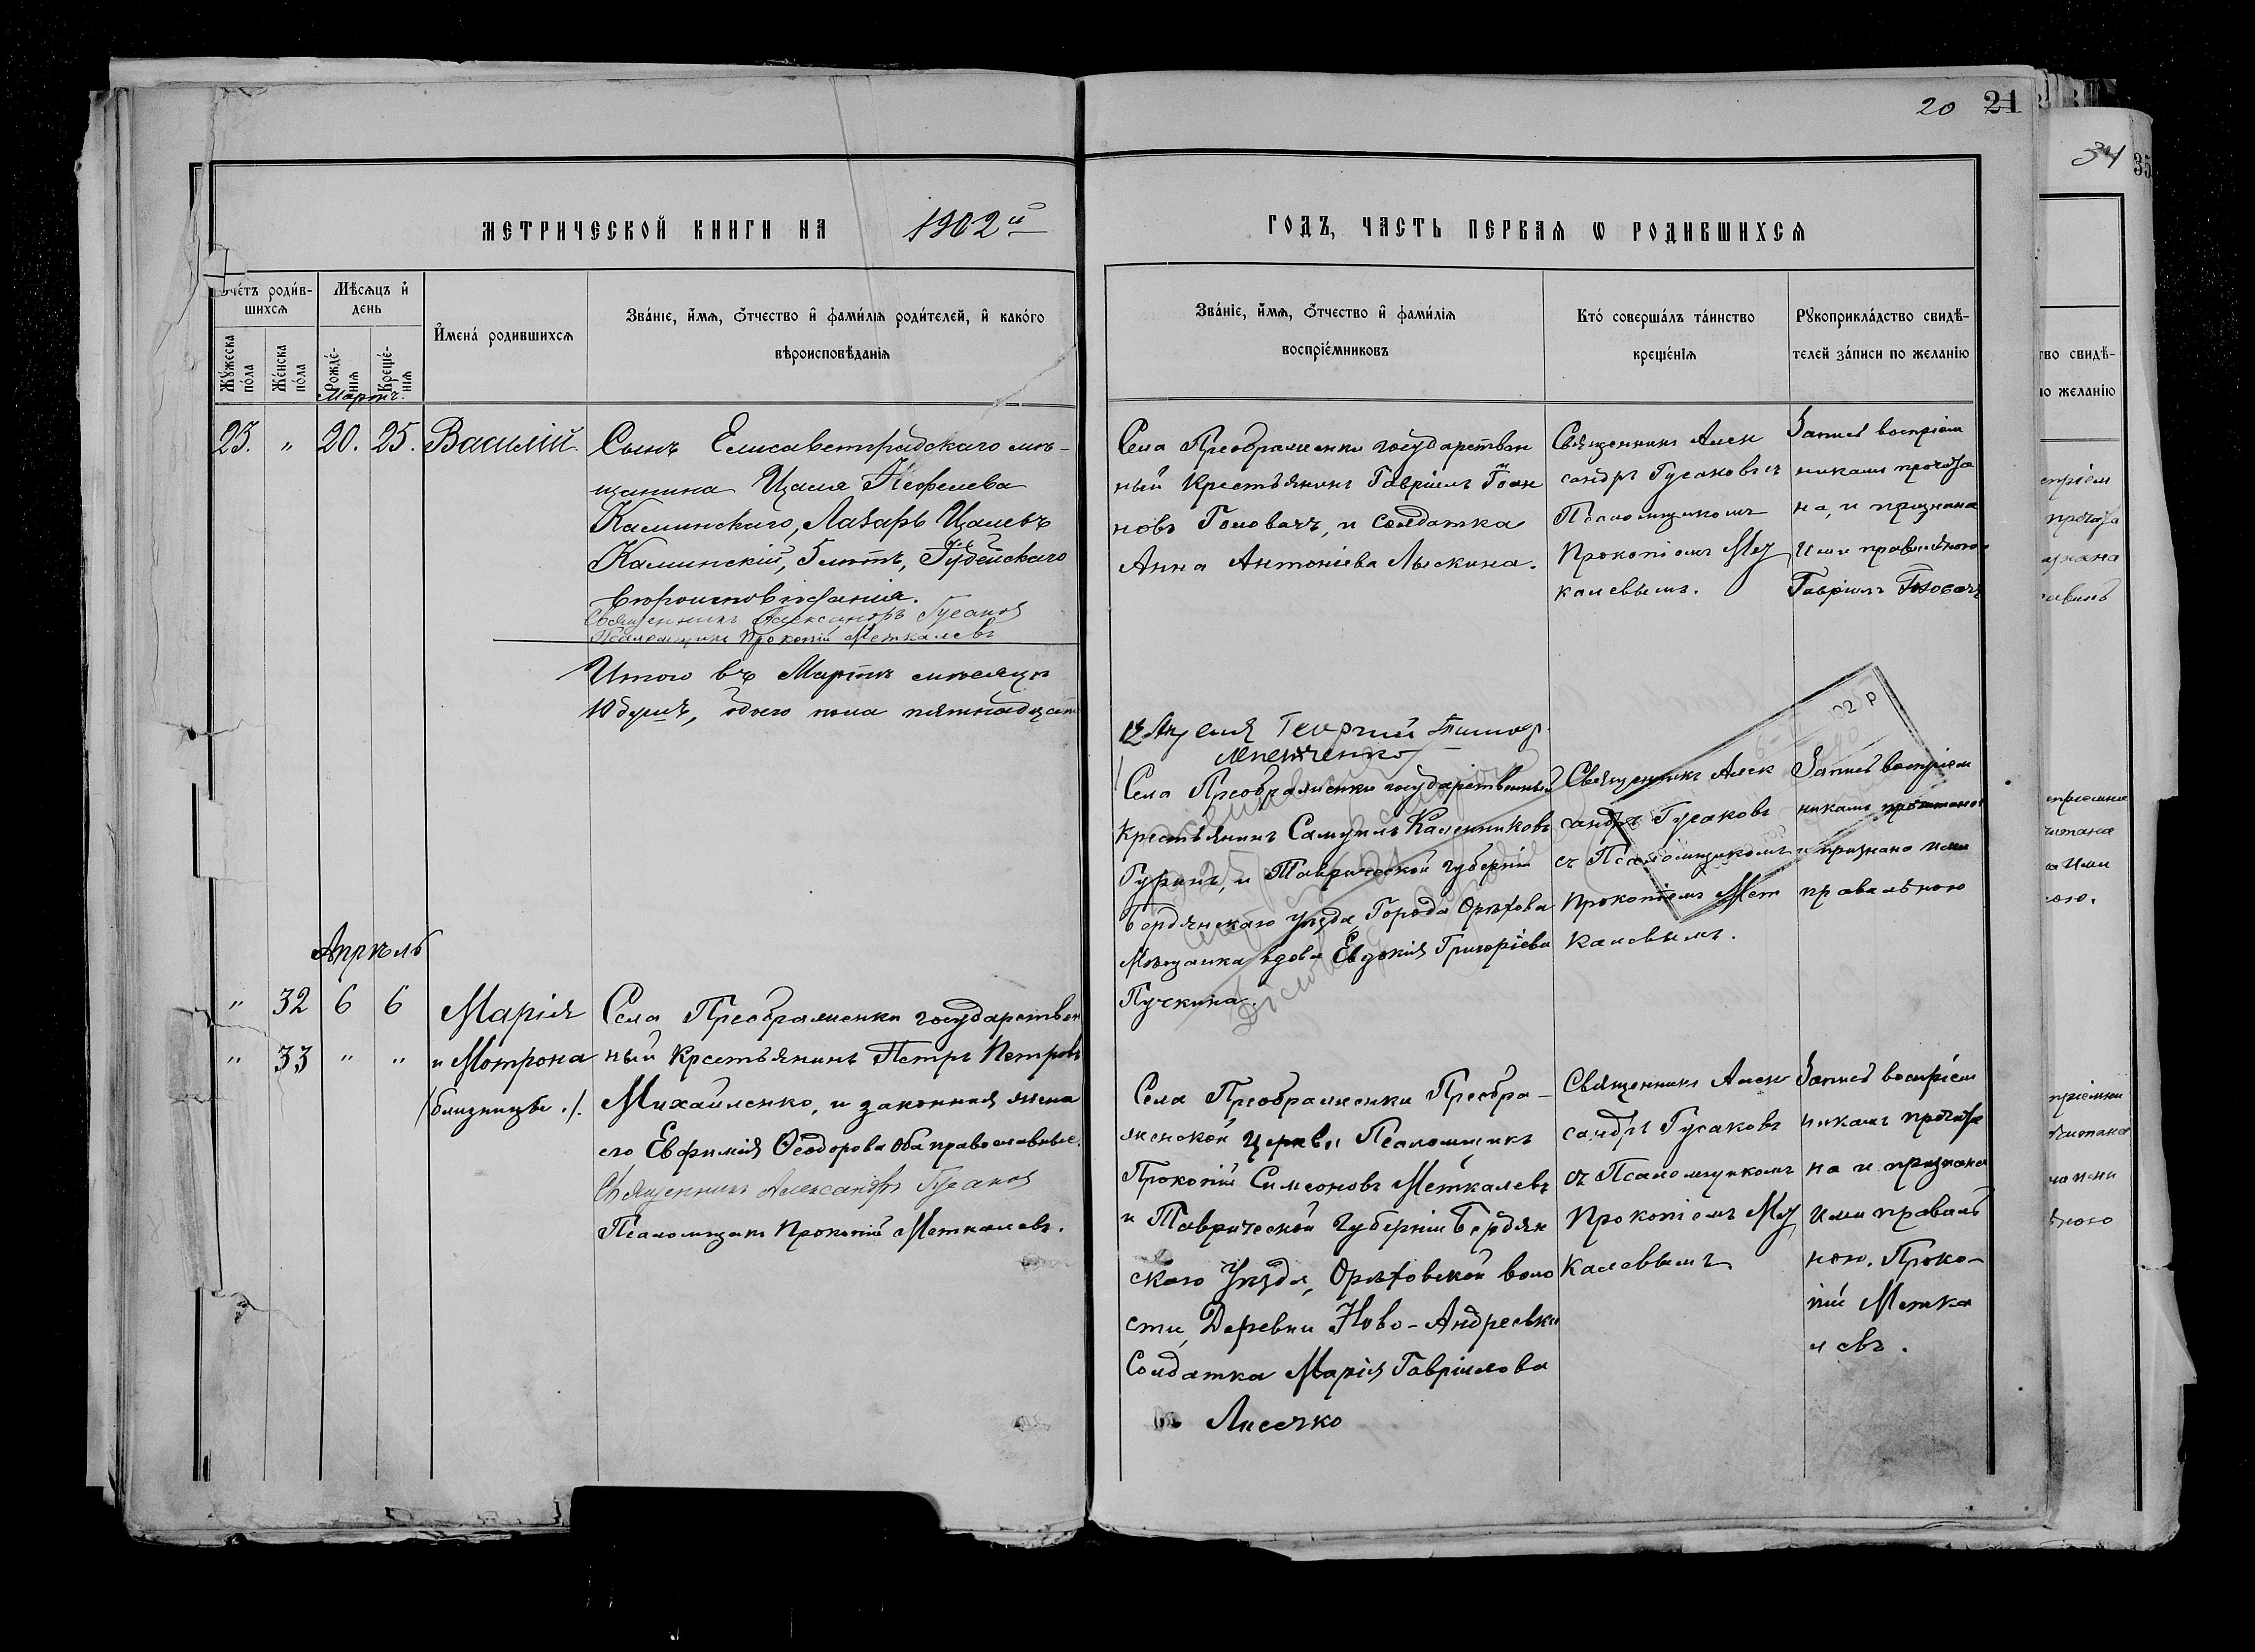 20 21
34 35
МЕТРИЧЕСКОЙ КНИГИ НА 1902й
ГОДЪ, ЧАСТЬ ПЕРВАЯ Ѡ РОДИВШИХСЯ
Счётъ роди́в-
шихся
Мѣсяцъ и҆
день
Му́жеска
по́ла
Же́нска
по́ла
Рожде́-
нія
Креще́-
нія
И҆мена́ родившихся
Зва́ніе, и҆́мя, ѻ҆́тчество и҆ фами́лія роди́телей, и҆ како́го
вѣроисповѣ́данія
Зва́ніе, и҆́мя, ѻ҆́тчество и҆ фами́лія
воспріе́мниковъ
Кто́ соверша́лъ та́инство
креще́нія
Рꙋкоприкла́дство свидѣ́-
телей за́писи по желанію
Мартъ.
23. " 20. 25. Василій.
Сынъ Елисаветградскаго мѣ-
щанина Цаля Нефелева
Каминскаго, Лазарь Цалевъ
Каминскій, 5 лѣтъ, Іудейскаго
вѣроисповѣданія.
Священникъ Александръ Гусаковъ
Псаломщикъ Прокопій Меткалевъ
Итого въ Мартѣ мѣсяцѣ
обоего пола пятнадцать
Села Преображенки государствен
ный Крестьянинъ Гавріилъ Іоан
новъ Головачъ, и солдатка
Анна Антоніева Лыскина.
Священникъ Алек
сандръ Гусаковъ съ
Псаломщикомъ
Прокопіемъ Мет
калевымъ.
Запись воспріем
никамъ прочита
на, и признана
Ими правильною
Гавріилъ Головачъ
Георгій
Села Преображенки государственный
Крестьянинъ Самуилъ Калинниковъ
Гуринъ, и Таврической губерніи
Бердянскаго уѣзда, Города Орѣхова
Мѣщанка вдова Евдокія Григоріева
Пучкина.
Священникъ Алек
сандръ Гусаковъ
съ Псаломщикомъ
Прокопіемъ Мет
калевымъ.
Запись воспріем
никамъ прочитана
и признана Ими
правильною
Апрѣль
" 32 6 6 Марія
" 33 " " и Мотрона
/близницы./.
Села Преображенки государствен
ный Крестьянинъ Петръ Петровъ
Михайленко, и законная жена
его Евфимія Ѳеодорова оба православные.
Священникъ Александръ Гусаковъ
Псаломщикъ Прокопій Меткалевъ.
Села Преображенки Преобра-
женской церкви Псаломщикъ
Прокопій Симеоновъ Меткалевъ
и Таврической губерніи Бердян
скаго Уѣзда, Орѣховской воло
сти, Деревни Ново-Андреевки
Солдатка Марія Гавріилова
Лисечко
Священникъ Алек
сандръ Гусаковъ
съ Псаломщикомъ
Прокопіемъ Мет
калевымъ.
Запись воспріем
никамъ прочита
на и признана
Ими правиль
ною. Проко-
пій Метка
левъ.